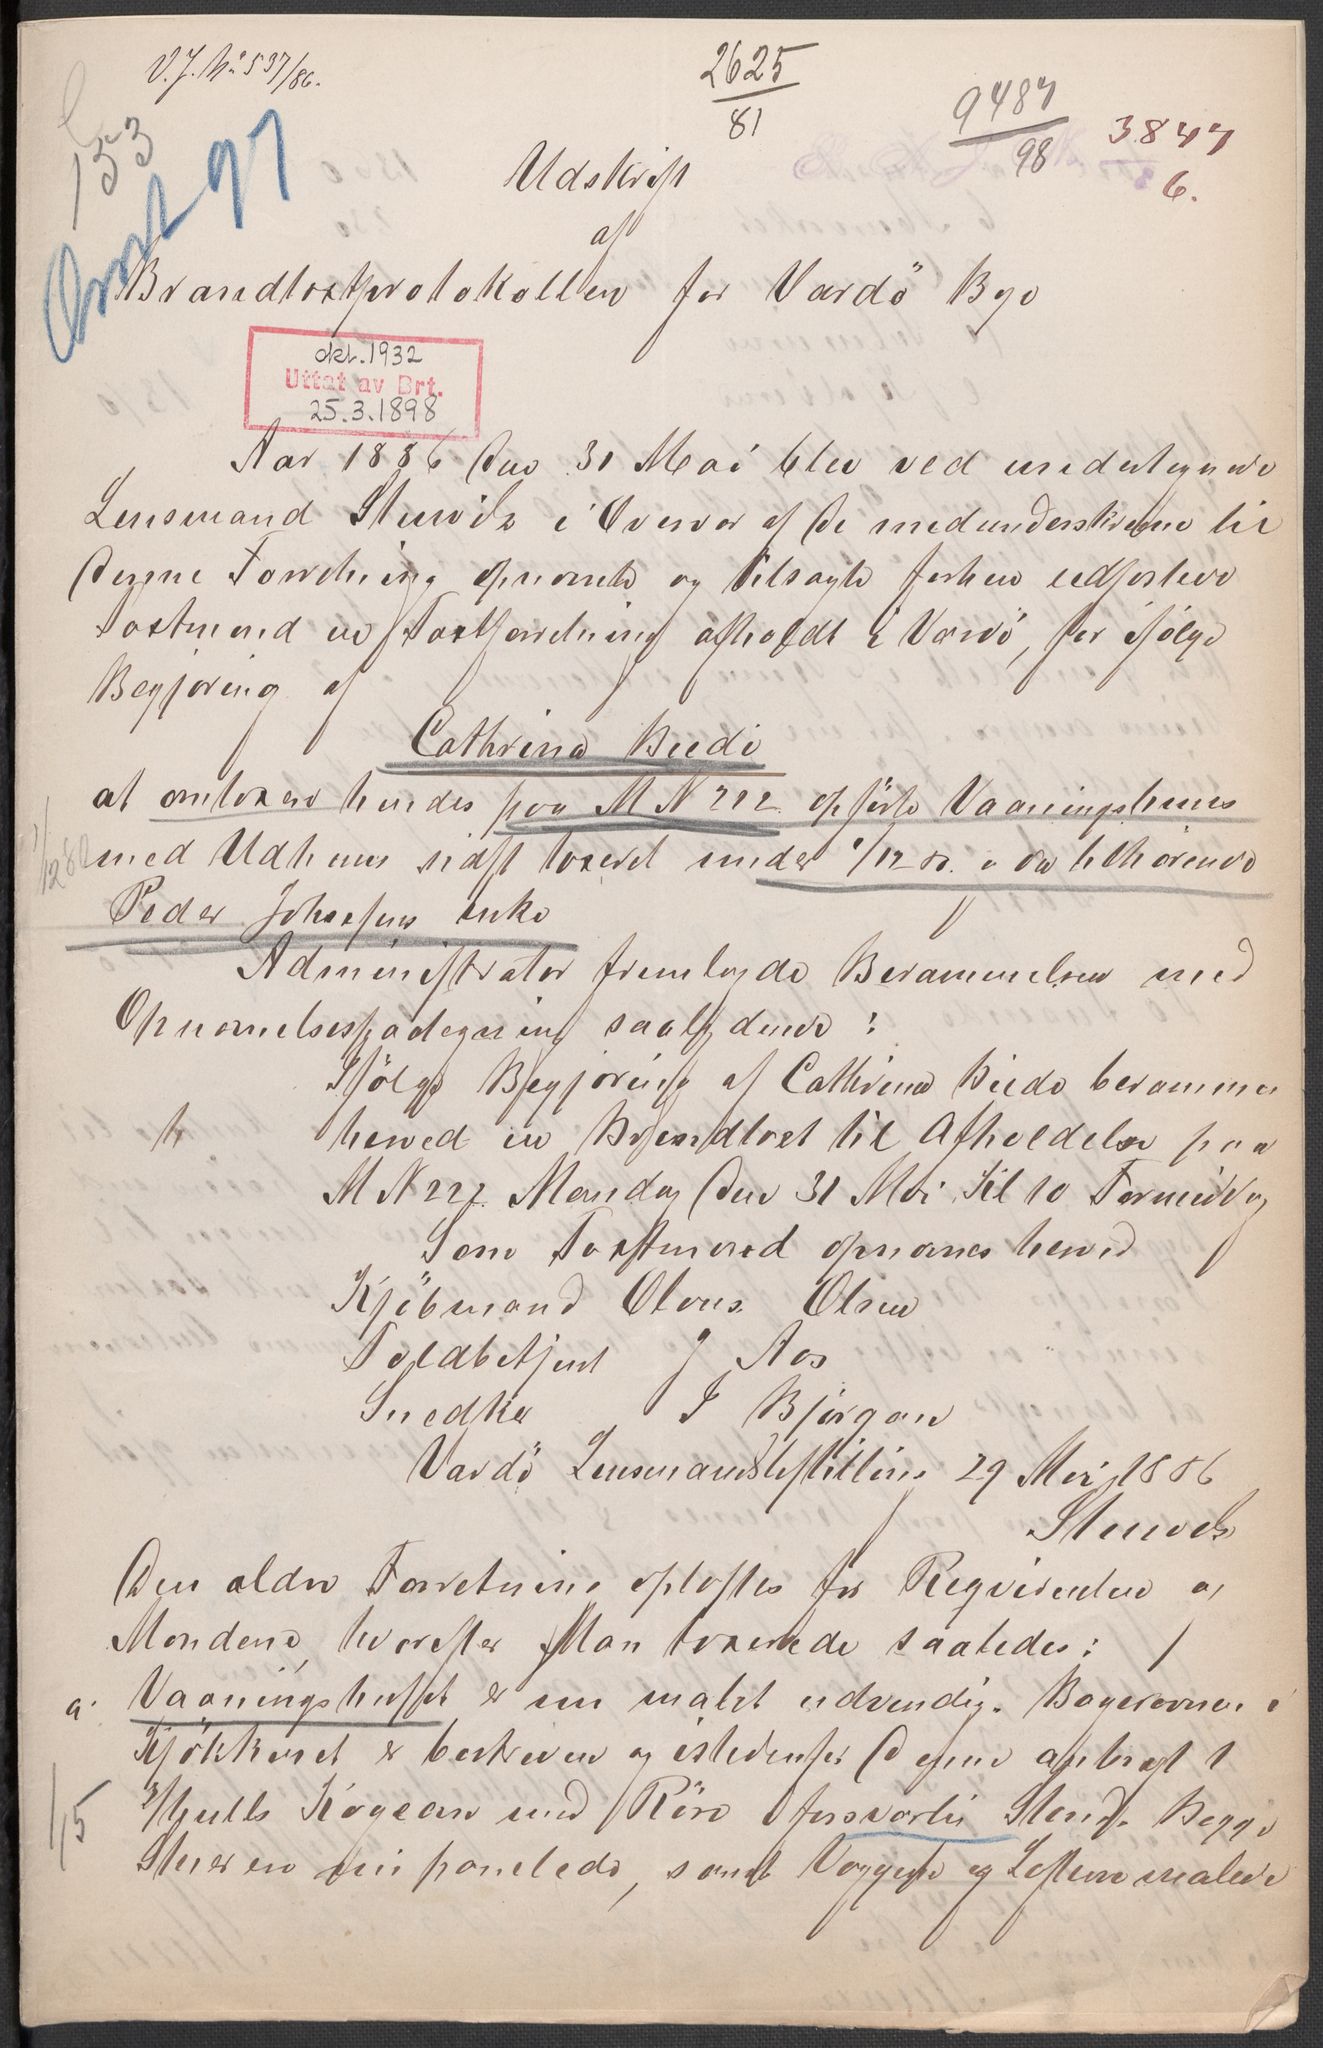 V.J. No 537/86.
2625
81
9487
98
3847
6.
153
97
Udskrift
af
Brandtaxtprotokollen for Vardö By
okt. 1932
Uttat av Brt.
25.3.1898
Aar 1886 den 31 Mai blev ved undertegnede
Lensmand i Overvær af de medunderskrevne til
denne Forretning opnævnte og tilsagte forhen edfæstede
Taxtmænd en Taxtforretning afholdt i Vardö, for ifölge
Begjæring af
Cathrina Beedi
at omtaxere hendes paa M N 222 opförte Vaaningshuus
med Udhuus sidst taxeret under 1/12 80. da tilhörende
1/12 80
Peder Johnsens enke
Administrator fremlagde Berammelsen med
Opnævnelsespaategning saalydende:
Ifölge Begjæring af Cathrina Beedi berammes
herved en Brandtaxt til Afholdelse paa
M N 222 Mandag den 31 Mai Kl 10 Formiddag
Som Taxtmænd opnævnes herved
Kjöbmand Olaus Olsen
Toldbetjent J Aas
Snedker I Björgan
Vardö Lensmandsbestilling 29 Mai 1886
Den ældre Forretning oplæstes for Reqvirenten og
Mændene, hvorefter Man taxerede saaledes:
a. Vaaningshuset er nu malet udvendig. Bagerovnen i
Kjökkenet er bortreven og istedenfor denne anbragt 1
2/hulls Kogeovn med Rör i forsvarlig Stand. Begge
1/15
Stuer er nu panelede, samt Vægge og Loftene malede